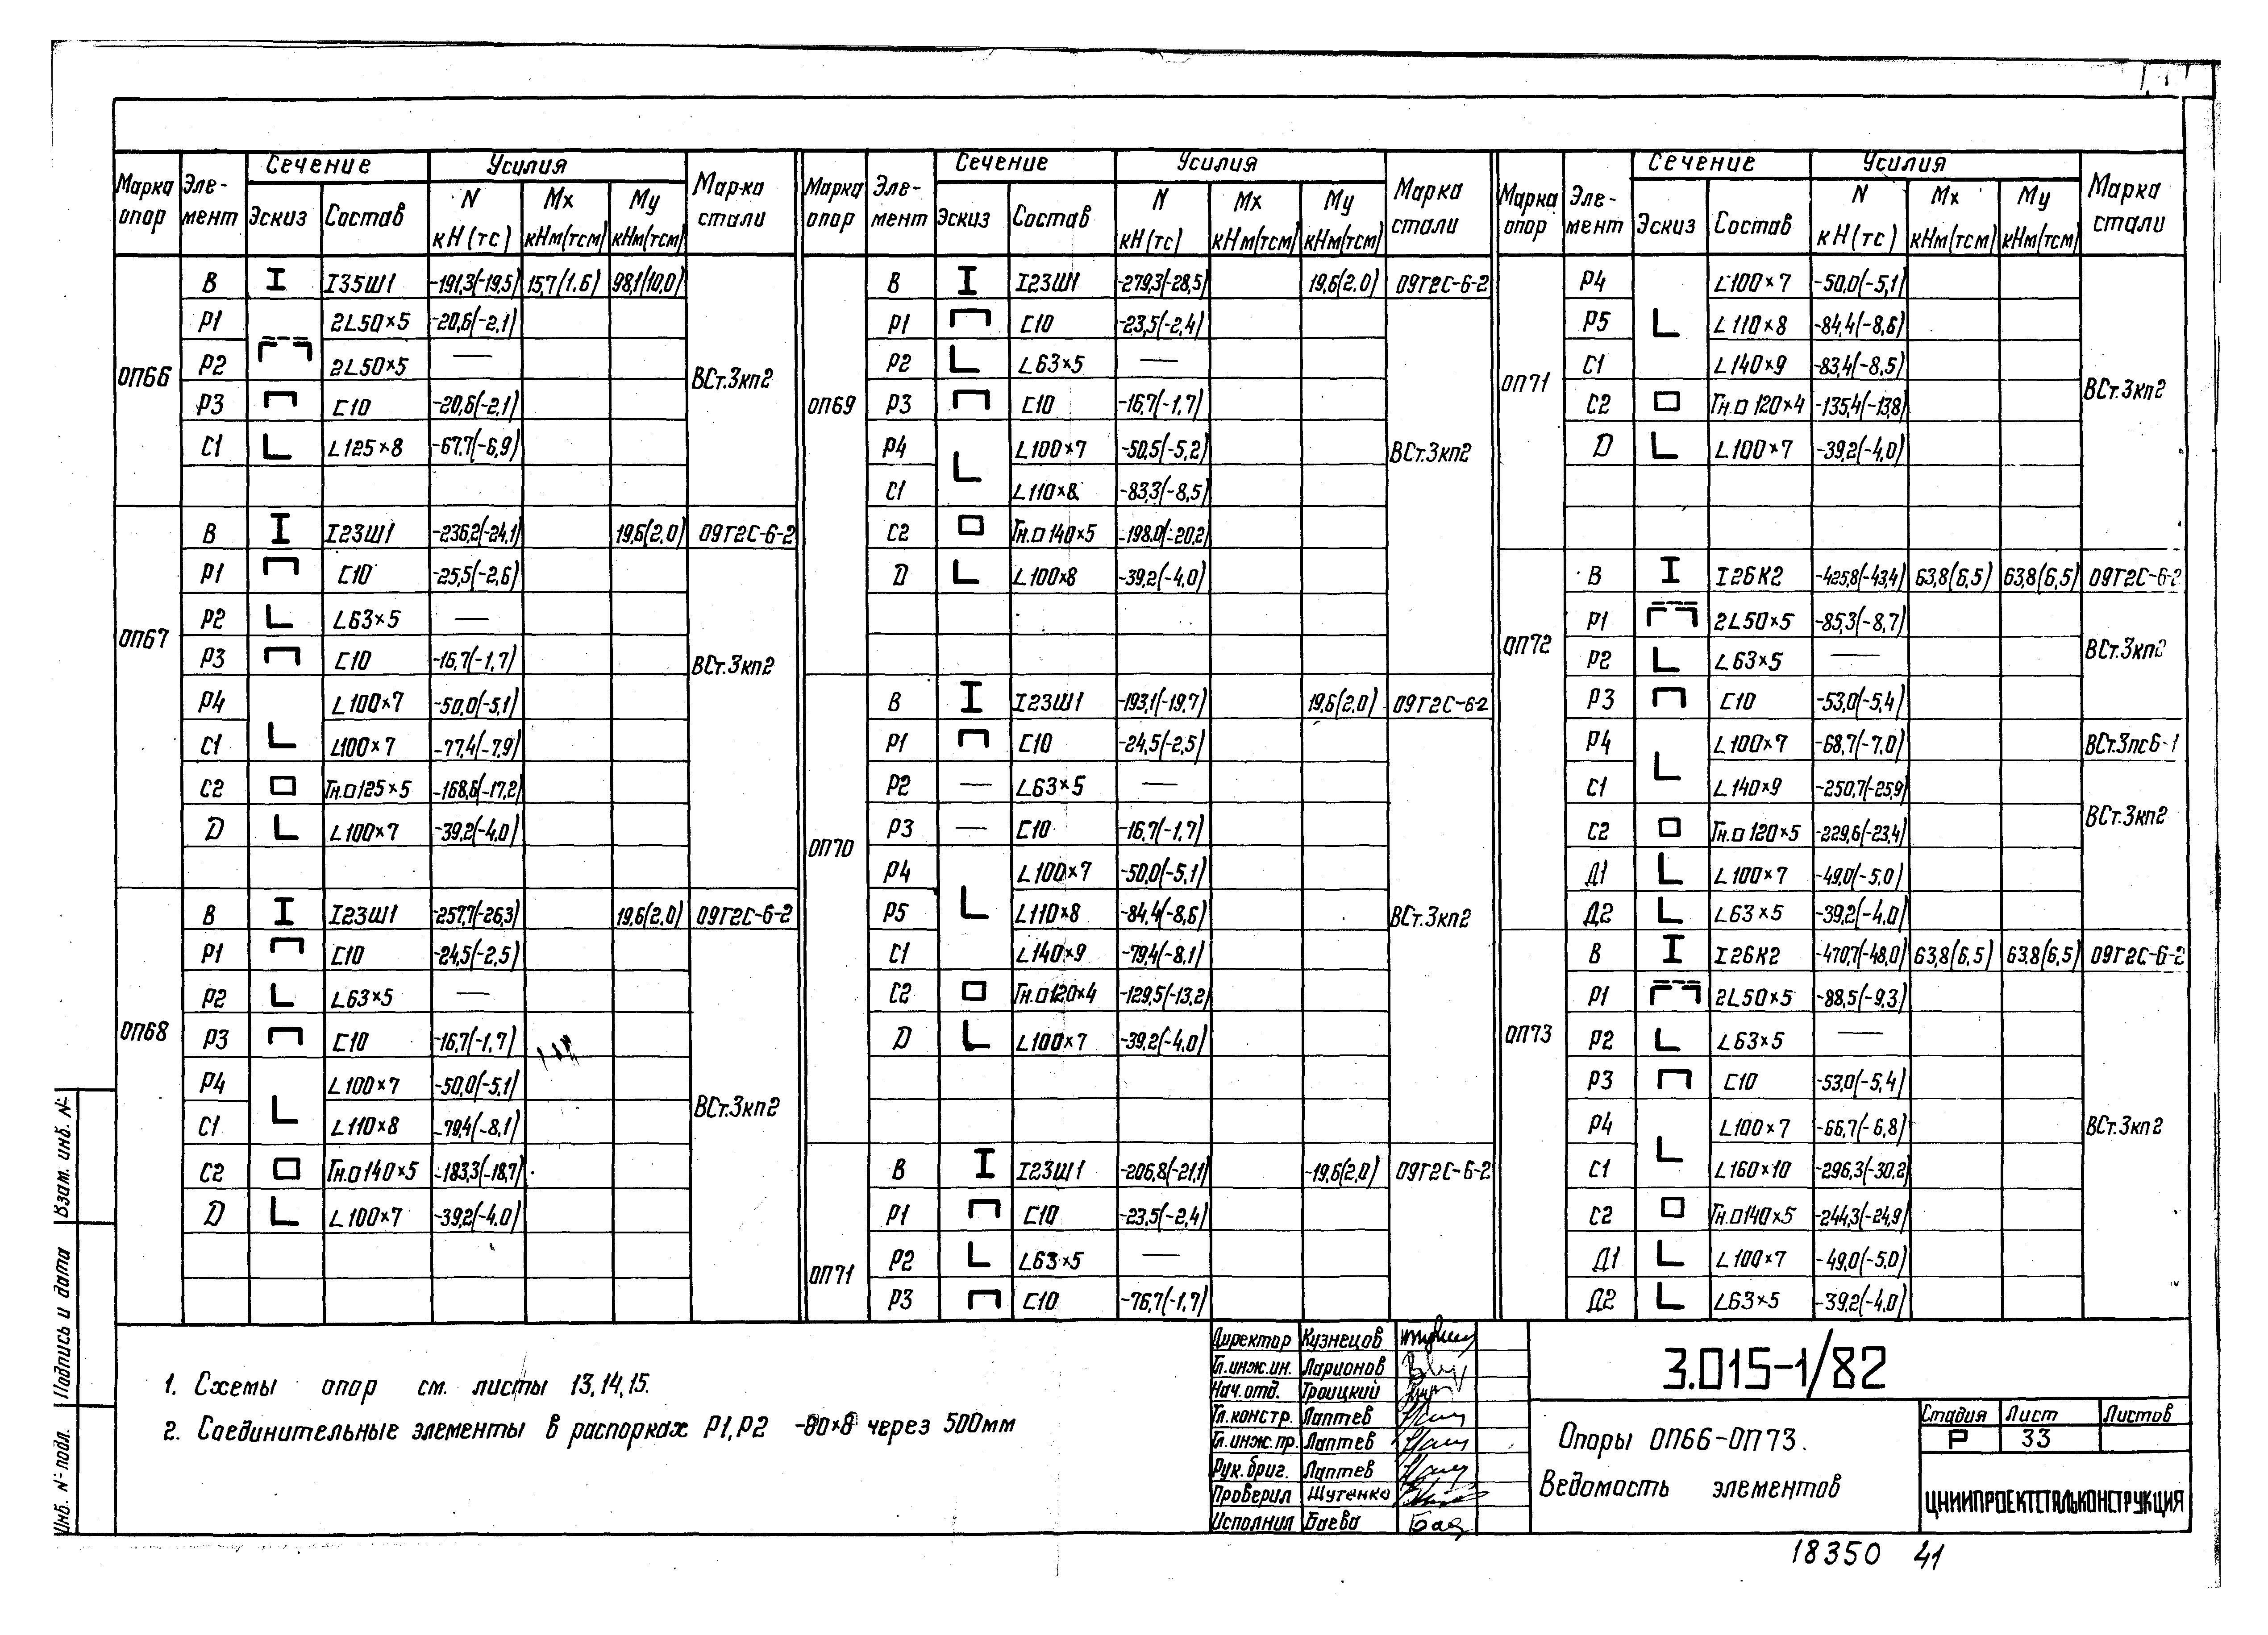 Марка опор | Элемент | Сечение | Усилия | Марка стали
Эскиз | Состав | N кН(тс) | Mx кНм(тсм) | My кНм(тсм)
ОП66
В I35Ш1 -191,3(-19,5) 15,7(1.6) 98,1(10,0)
Р1 2L50×5 -20,6(-2,1)
Р2 2L50×5 —
Р3 С10 -20,6(-2,1)
С1 L125×8 -67,7(-6,9)
ВСт.3кп2
ОП67
В I23Ш1 -236,2(-24,1) 19,6(2.0) 09Г2С-6-2
Р1 С10 -25,5(-2,6)
Р2 L63×5 —
Р3 С10 -16,7(-1,7)
Р4 L100×7 -50,0(-5,1)
С1 L100×7 -77,4(-7,9)
С2 Гн.□125×5 -168,6(-17,2)
D L100×7 -39,2(-4,0)
ВСт.3кп2
ОП68
В I23Ш1 -257,7(-26,3) 19,6(2,0) 09Г2С-6-2
Р1 С10 -24,5(-2,5)
Р2 L63×5 —
Р3 С10 -16,7(-1,7)
Р4 L100×7 -50,0(-5,1)
С1 L110×8 -79,4(-8,1)
С2 Гн.□140×5 -183,3(-18,7)
D L100×7 -39,2(-4,0)
ВСт.3кп2
Марка опор | Элемент | Сечение | Усилия | Марка стали
Эскиз | Состав | N кН(тс) | Mx кНм(тсм) | My кНм(тсм)
ОП69
В I23Ш1 -279,3(-28,5) 19,6(2,0) 09Г2С-6-2
Р1 С10 -23,5(-2,4)
Р2 L63×5 —
Р3 С10 -16,7(-1,7)
Р4 L100×7 -50,5(-5,2)
С1 L110×8 -83,3(-8,5)
С2 Гн.□140×5 -198.0(-20,2)
D L100×8 -39,2(-4,0)
ВСт.3кп2
ОП70
В I23Ш1 -193,1(-19,7) 19,6(2,0) 09Г2С-6-2
Р1 С10 -24,5(-2,5)
Р2 — L63×5 —
Р3 — С10 -16,7(-1,7)
Р4 L100×7 -50,0(-5,1)
Р5 L110×8 -84,4(-8,6)
С1 L140×9 -79,4(-8,1)
С2 Гн.□120×4 -129,5(-13,2)
D L100×7 -39,2(-4,0)
ВСт.3кп2
ОП71
В I23Ш1 -206,8(-21,1) -19,6(2,0) 09Г2С-6-2
Р1 С10 -23,5(-2,4)
Р2 L63×5 —
Р3 С10 -76,7(-1,7)
Марка опор | Элемент | Сечение | Усилия | Марка стали
Эскиз | Состав | N кН(тс) | Mx кНм(тсм) | My кНм(тсм)
ОП71
Р4 L100×7 -50,0(-5,1)
Р5 L110×8 -84,4(-8,6)
С1 L140×9 -83,4(-8,5)
С2 Гн.□120×4 -135,4(-13,8)
D L100×7 -39,2(-4,0)
ВСт.3кп2
ОП72
В I26К2 -425,8(-43,4) 63,8(6,5) 63,8(6,5) 09Г2С-6-2
Р1 2L50×5 -85,3(-8,7)
Р2 L63×5 —
Р3 С10 -53,0(-5,4)
ВСт.3кп2
Р4 L100×7 -68,7(-7,0) ВСт.3пс6-1
С1 L140×9 -250,7(-25,9)
С2 Гн.□120×5 -229,6(-23,4)
Д1 L100×7 -49,0(-5,0)
Д2 L63×5 -39,2(-4,0)
ВСт.3кп2
ОП73
В I26К2 -470,7(-48,0) 63,8(6,5) 63,8(6,5) 09Г2С-6-2
Р1 2L50×5 -88,5(-9,3)
Р2 L63×5 —
Р3 С10 -53,0(-5,4)
Р4 L100×7 -66,7(-6,8)
С1 L160×10 -296,3(-30,2)
С2 Гн.□140×5 -244,3(-24,9)
Д1 L100×7 -49,0(-5,0)
Д2 L63×5 -39,2(-4,0)
ВСт.3кп2
1. Схемы опор см. листы 13,14,15.
2. Соединительные элементы в распорках Р1,Р2 -80×8 через 500мм
Директор Кузнецов
Гл.инж.ин. Ларионов
Нач.отд. Троицкий
Гл.констр. Лаптев
Гл.инж.пр. Лаптев
Рук.бриг. Лаптев
Проверил Шутенко
Исполнил Баева
3.015-1/82
Опоры ОП66-ОП73.
Ведомость элементов
Стадия Лист Листов
Р 33
ЦНИИПРОЕКТСТАЛЬКОНСТРУКЦИЯ
18350 41
Взам. инв. №
Подпись и дата
Инв. № подл.